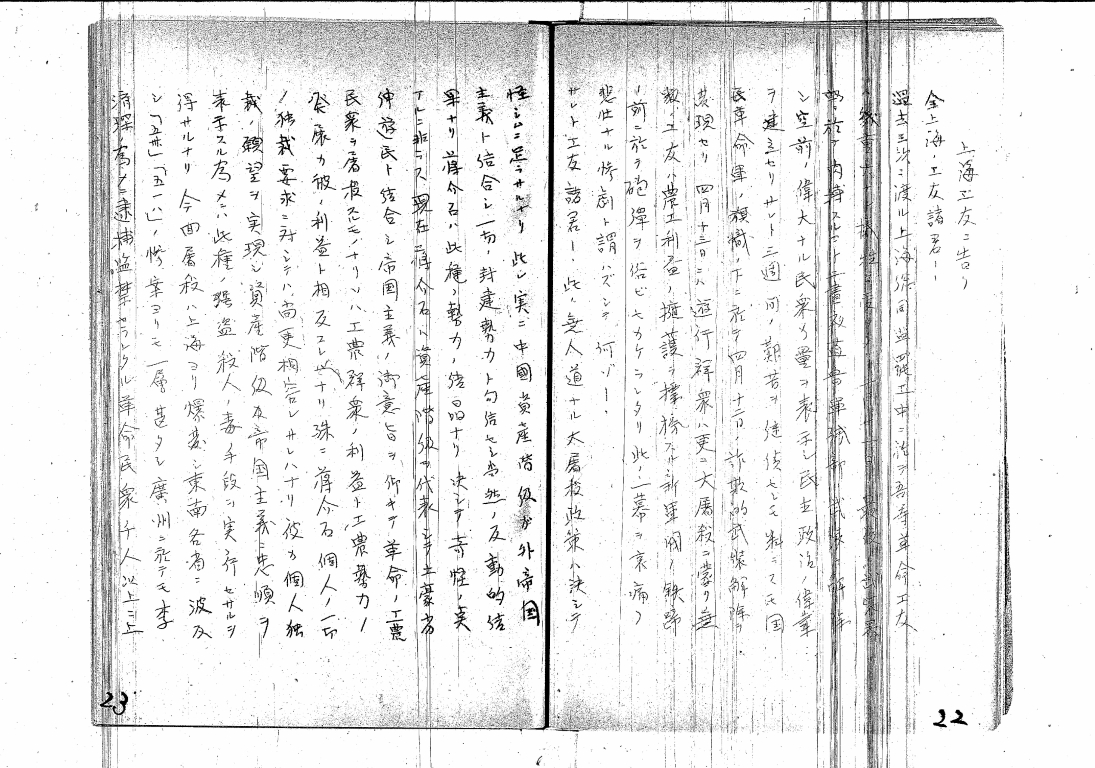 上海工友ニ告ク
全上海ノ工友諸君！
過去三次ニ渡ル上海総同盟罷工中ニ於テ吾等革命工友
ハ幾重大ナ犠牲ヲ
ン空前ノ偉大ナル民衆力量ヲ表示シ民主政治ノ偉業
ヲ建立セリ サレト三週間ノ艱苦ヲ継続セシモ料ラスモ国
民革命軍ノ旗幟ノ下ニ於テ四月十二日ノ詐欺的武装解除ヲ
実現セリ 四月十三日ニハ遊行群衆ハ更ニ大屠殺ニ蒙リ無
数ノ工友ハ農工利益ノ擁護ヲ標榜スル新軍閥ノ鉄蹄
ノ前ニ於ヲ砲弾ヲ浴ビセカケラレタリ 此ノ一幕ヲ哀痛ノ
悲壮ナル惨劇ト謂ハズシテ何ゾ！
サレト工友諸君！ 此ノ無人道ナル大屠殺政策ハ決シテ
怪シムニ足ラサルナリ 此レ実ニ中國資産階級カ外帝国
主義ト結合シ一切ノ封建勢力ト勾結セシ当然ノ反動的結
果ナリ 蒋介石ハ此種ノ勢力ノ結晶ナリ 決シテ奇怪ノ実
ナルニ非ラス 現在ニ蒋介石ハ資産階級ヲ代表シテ土豪劣
紳遊民ト結合シ帝国主義ノ御意旨ヲ仰キテ革命ノ工農
民衆ヲ屠殺スルモノナリ ソハ工農群衆ノ利益ト工農勢力ノ
発展カ彼ノ利益ト相反スレハナリ 殊ニ蒋介石個人ノ一切
ノ独裁要求ニ対シテハ尚更相容レサレハナリ 彼カ個人独
裁ノ願望ヲ実現シ資産階級及帝国主義ニ忠順ヲ
表示スル為メニハ此種ノ強盗殺人ノ毒手段ヲ実行セサルヲ
得サルナリ 今回屠殺ハ上海ヨリ爆発シ東南各省ニ波及
シ「五卅」「三一八」ノ惨案ヨリモ一層甚タシ 廣州ニ於テモ李
済琛ノ為メニ逮捕監禁セラレタル革命民衆千人以上ニ上
23
22